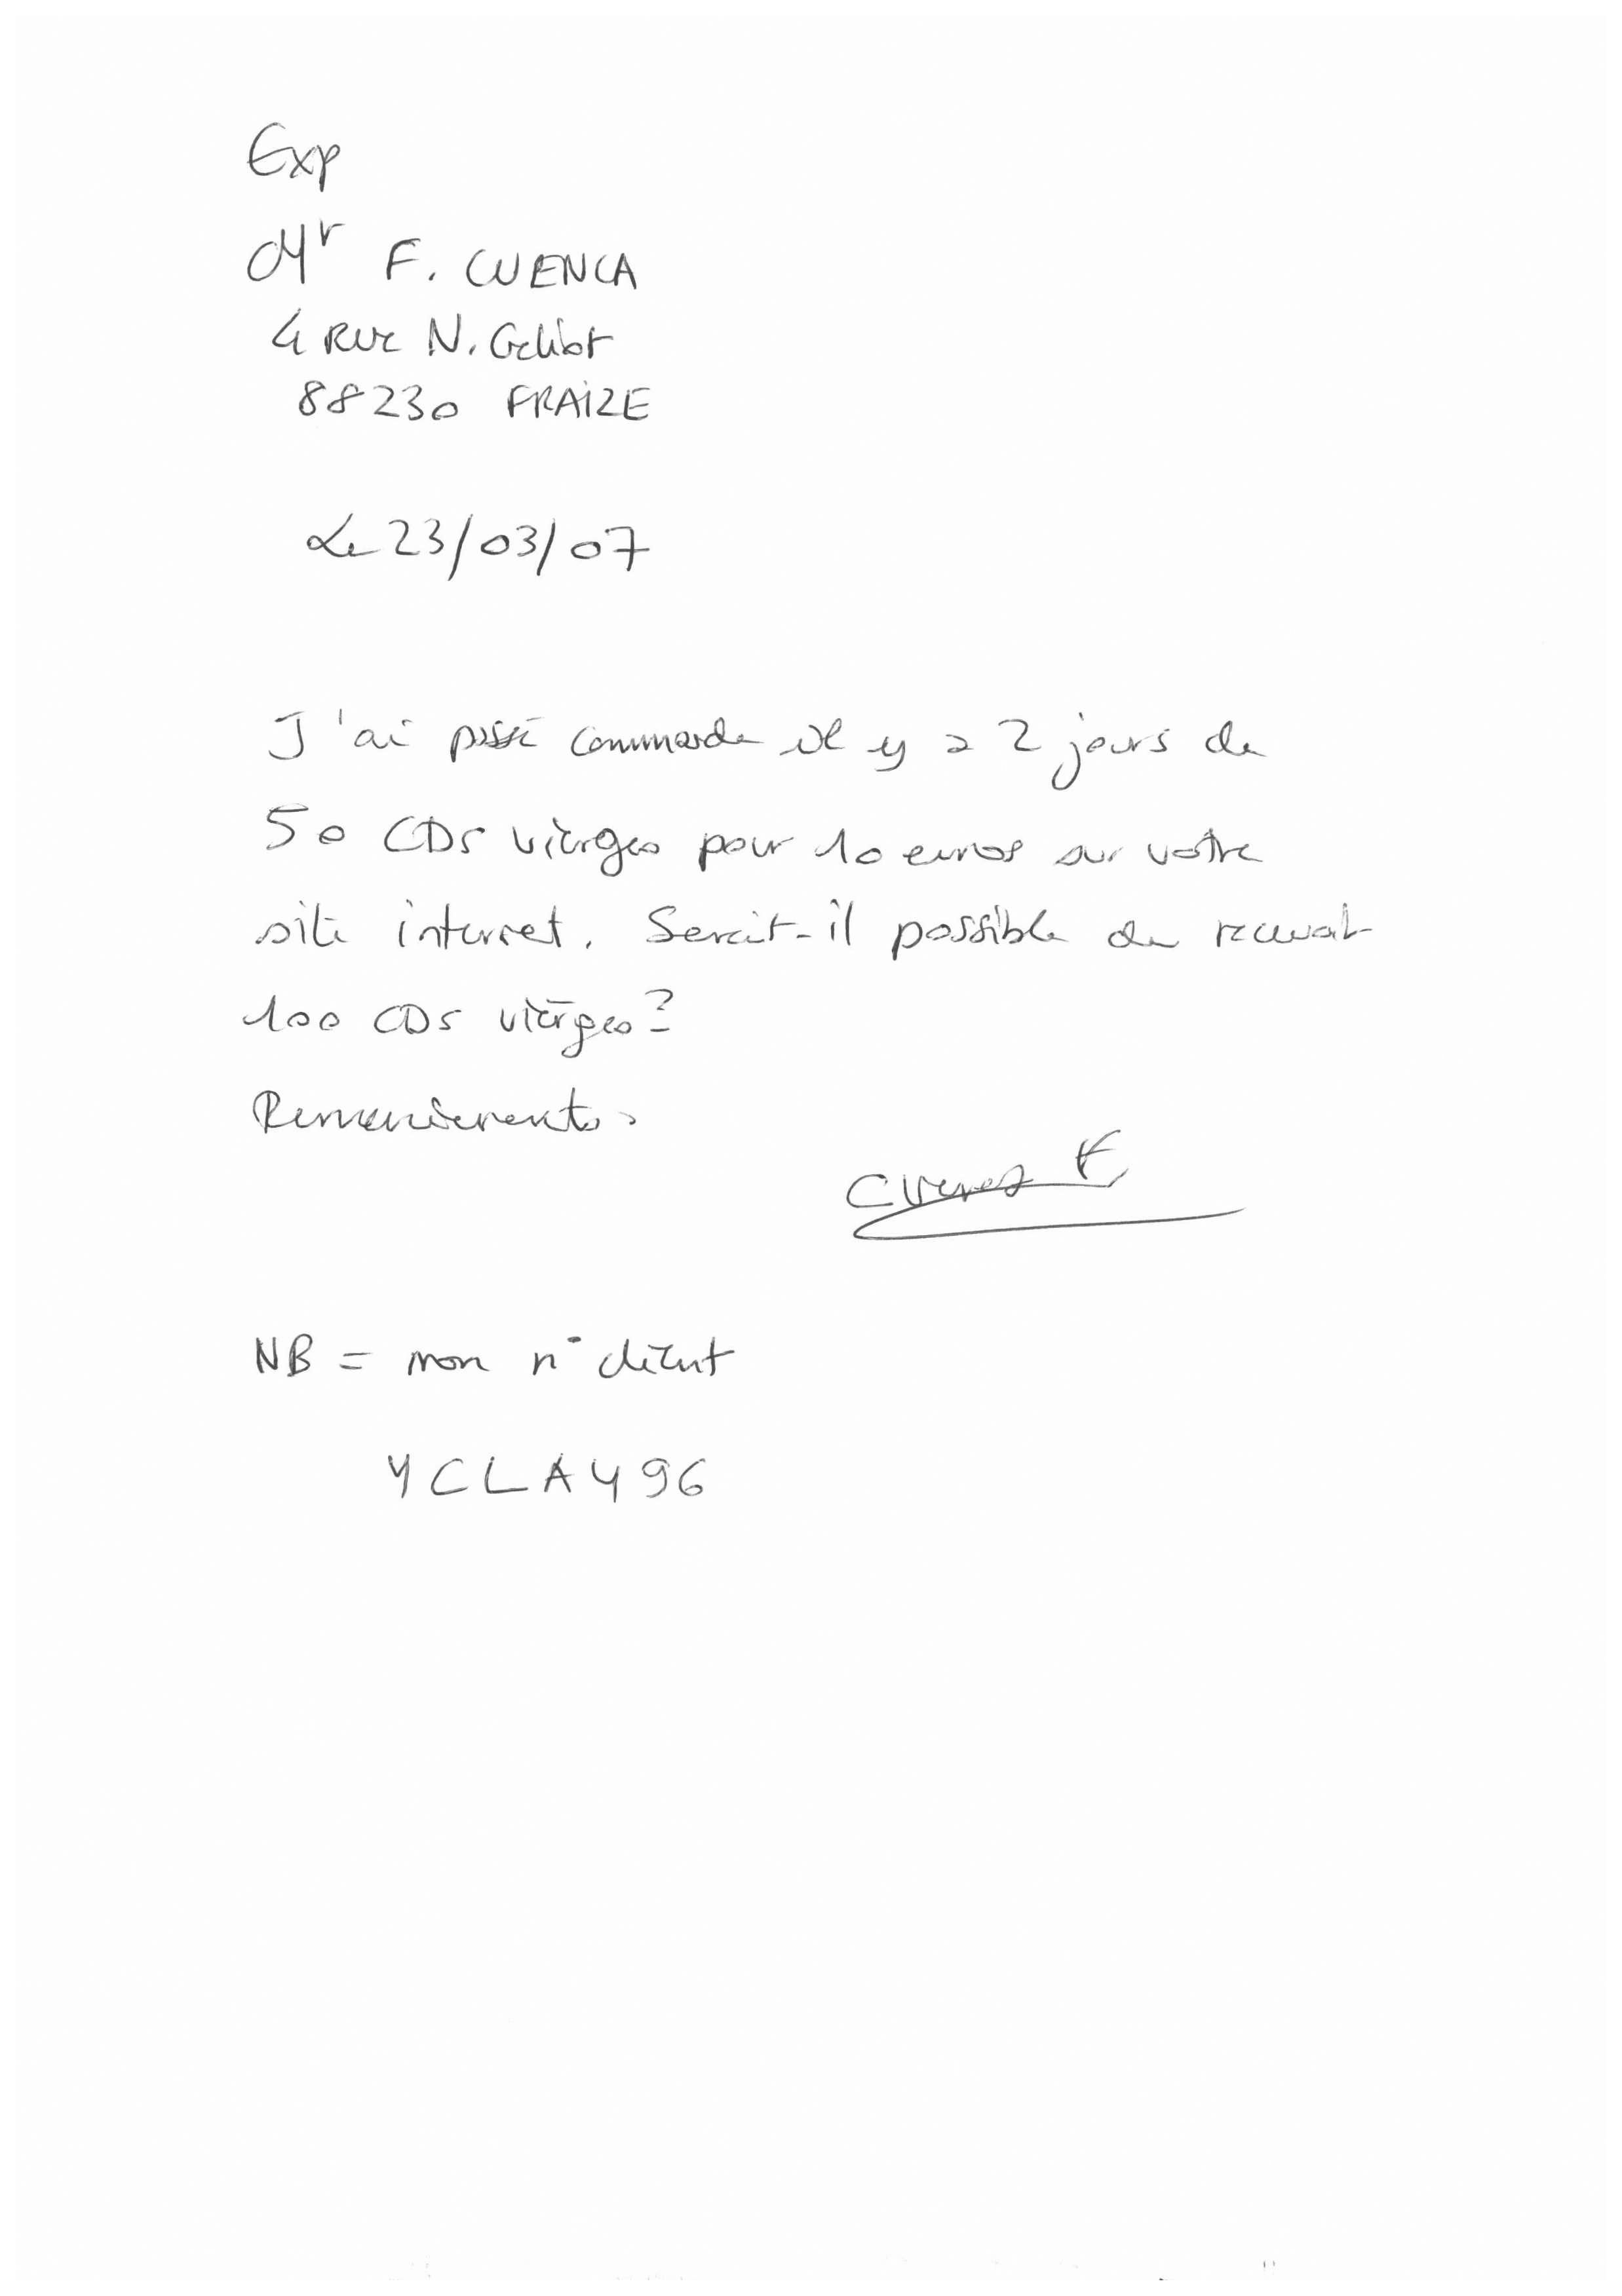 Exp
Mr F. CUENCA
4 Rue N. Géliot
88230 FRAIZE
Le 23/03/07
J'ai passé commande il y a 2 jours de
50 CDs vierges pour 10 euros sur votre
site internet. Serait-il possible de recevoir
100 CDs vierges?
Remerciements.
Cuenca F
NB = mon n° client
YCLAY96